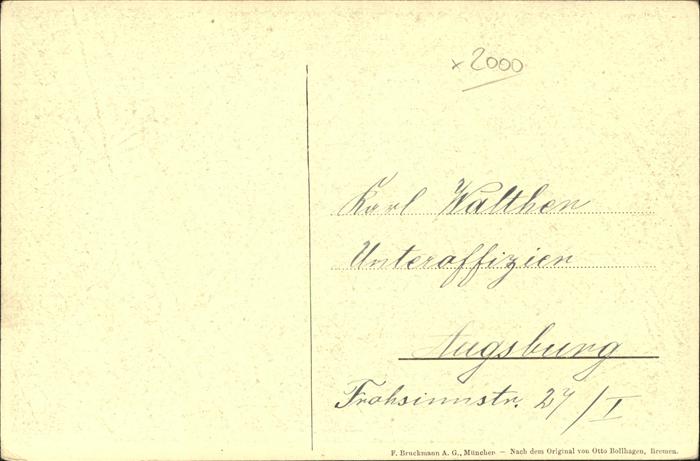 x 2000
Karl Walther
Unteroffizier
Augsburg
Frohsinnstr. 27/I
F. Bruckmann A. G., München — Nach dem Original von Otto Bollhagen, Bremen.